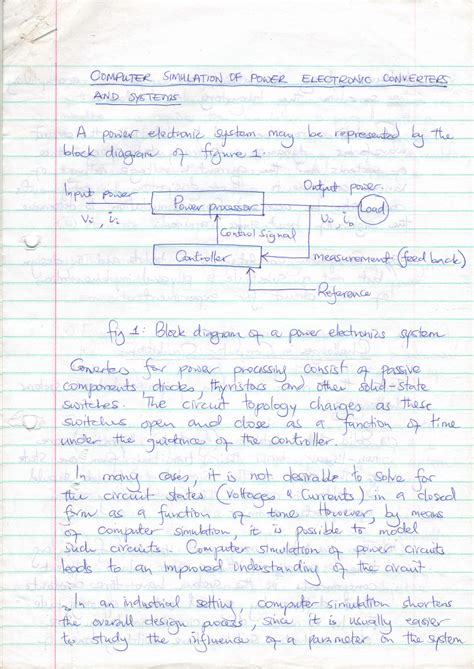 COMPUTER SIMULATION OF POWER ELECTRONIC CONVERTERS
AND SYSTEMS
A power electronic system may be represented by the
block diagram of figure 1.
Input power
Output power
Power processor
Load
Vi, ii
Vo, io
Control signal
Controller
measurement (feed back)
Reference
fig 1: Block diagram of a power electronics system
Converters for power processing consist of passive
components, diodes, thyristors and other solid-state
switches. The circuit topology changes as these
switches open and close as a function of time
under the guidance of the controller.
In many cases, it is not desirable to solve for
the circuit states (Voltages & Currents) in a closed
form as a function of time. However, by means
of computer simulation, it is possible to model
such circuits. Computer simulation of power circuits
leads to an improved understanding of the circuit
In an industrial setting, computer simulation shortens
the overall design process, since it is usually easier
to study the influence of a parameter on the system